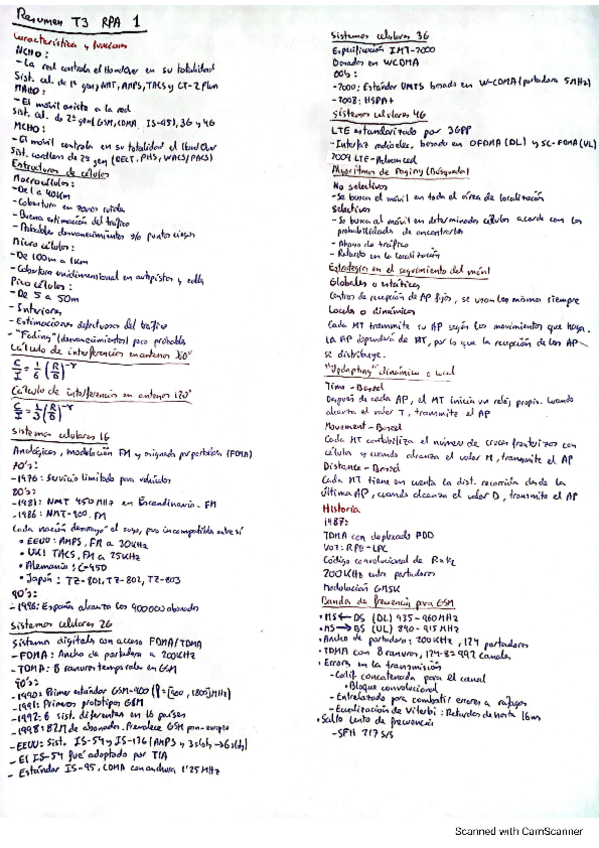 Resumen T3 RPA 1
Características y funciones
NCHO:
- La red controla el HandOver en su totalidad
Sist. cel. de 1ª gen, AMPS, TACS y CT-2 Plus
MAHO:
- El móvil asiste a la red
Sist. cel. de 2ª gen (GSM, CDMA IS-95), 3G y 4G
MCHO:
- El móvil controla en su totalidad el HandOver
Sist. cordless de 2ª gen (DECT, PHS, WACS/PACS)
Estructuras de células
Macrocélulas:
- De 1 a 40Km
- Cobertura en zonas rurales
- Buena estimación del tráfico
- Probables desvanecimientos y/o puntos ciegos
Micro células:
- De 100m a 1Km
- Cobertura unidimensional en autopistas y calles
Pico células:
- De 5 a 50m
- Interiores
- Estimaciones defectuosas del tráfico
- "Fading" (desvanecimientos) poco probables
Cálculo de interferencias en antenas
C/I = 1/6 (R/D)^-γ
Cálculo de interferencias en antenas 120°
C/I = 1/3 (R/D)^-γ
Sistemas celulares 1G
Analógicos, modulación FM y asignada por portadora (FDMA)
70's:
- 1976: Servicio limitado para vehículos
80's:
- 1981: NMT 450MHz en Escandinavia. FM
- 1986: NMT-900. FM
Cada nación desarrolló el suyo, pero incompatibles entre sí
• EEUU: AMPS, FM a 30KHz
• UK: TACS, FM a 25KHz
• Alemania: C-450
• Japón: TZ-801, TZ-802, TZ-803
90's:
- 1996: España alcanza los 900000 abonados
Sistemas celulares 2G
Sistema digitales con acceso FDMA/TDMA
- FDMA: Ancho de portadora a 200KHz
- TDMA: 8 ranuras temporales en GSM
90's:
- 1990: Primer estándar GSM-900 (f=[900, 1800]MHz)
- 1991: Primeros prototipos GSM
- 1992: 6 sist. diferentes en 16 países
- 1998: 82M de abonados. Prevalece GSM pan-europeo
- EEUU: Sist. IS-54 y IS-136 (AMPS y 3 slots → 6 slots)
- El IS-54 fué adoptado por TIA
- Estándar IS-95, CDMA con anchura 1'25MHz
Sistemas celulares 3G
Especificación IMT-2000
Basados en WCDMA
00's:
- 2000: Estándar UMTS basado en W-CDMA (portadora 5MHz)
- 2008: HSPA+
Sistemas celulares 4G
LTE estandarizado por 3GPP
- Interfaz radioeléc. basado en OFDMA (DL) y SC-FDMA (UL)
2009 LTE-Advanced
Algoritmos de Paging (Búsqueda)
No selectivos
- Se busca el móvil en toda el área de localización
Selectivos
- Se busca al móvil en determinadas células acorde con las
probabilidades de encontrarlo
- Ahorro de tráfico
- Retardo en la localización
Estrategias en el seguimiento del móvil
Globales o estáticas
Centros de recepción de AP fijos, se usan los mismos siempre
Locales o dinámicas
Cada MT transmite su AP según los movimientos que haga.
La AP dependerá de MT, por lo que la recepción de los AP
se distribuye.
"Updating" dinámico o local
Time - Based
Después de cada AP, el MT inicia un reloj propio. Cuando
alcanza el valor T, transmite el AP
Movement - Based
Cada MT contabiliza el número de cruces fronterizos con
células y cuando alcanza el valor M, transmite el AP
Distance - Based
Cada MT tiene en cuenta la dist. recorrida desde la
última AP, cuando alcanza el valor D, transmite el AP
Historia
1987:
TDMA con duplexado FDD
Voz: RPE-LPC
Código convolucional de R=1/2
200KHz entre portadoras
Modulación GMSK
Banda de frecuencia para GSM
• MS ← BS (DL) 935-960MHz
• MS → BS (UL) 890-915MHz
• Ancho de portadora: 200KHz, 124 portadoras
• TDMA con 8 ranuras, 124·8=992 canales
• Errores en la transmisión
- Codif. concatenada para el canal
• Bloque convolucional
- Entrelazado para combatir errores a ráfagas
- Ecualización de Viterbi: Retardos de hasta 16us
• Salto lento de frecuencia
- SFH 217 S/S
Scanned with CamScanner